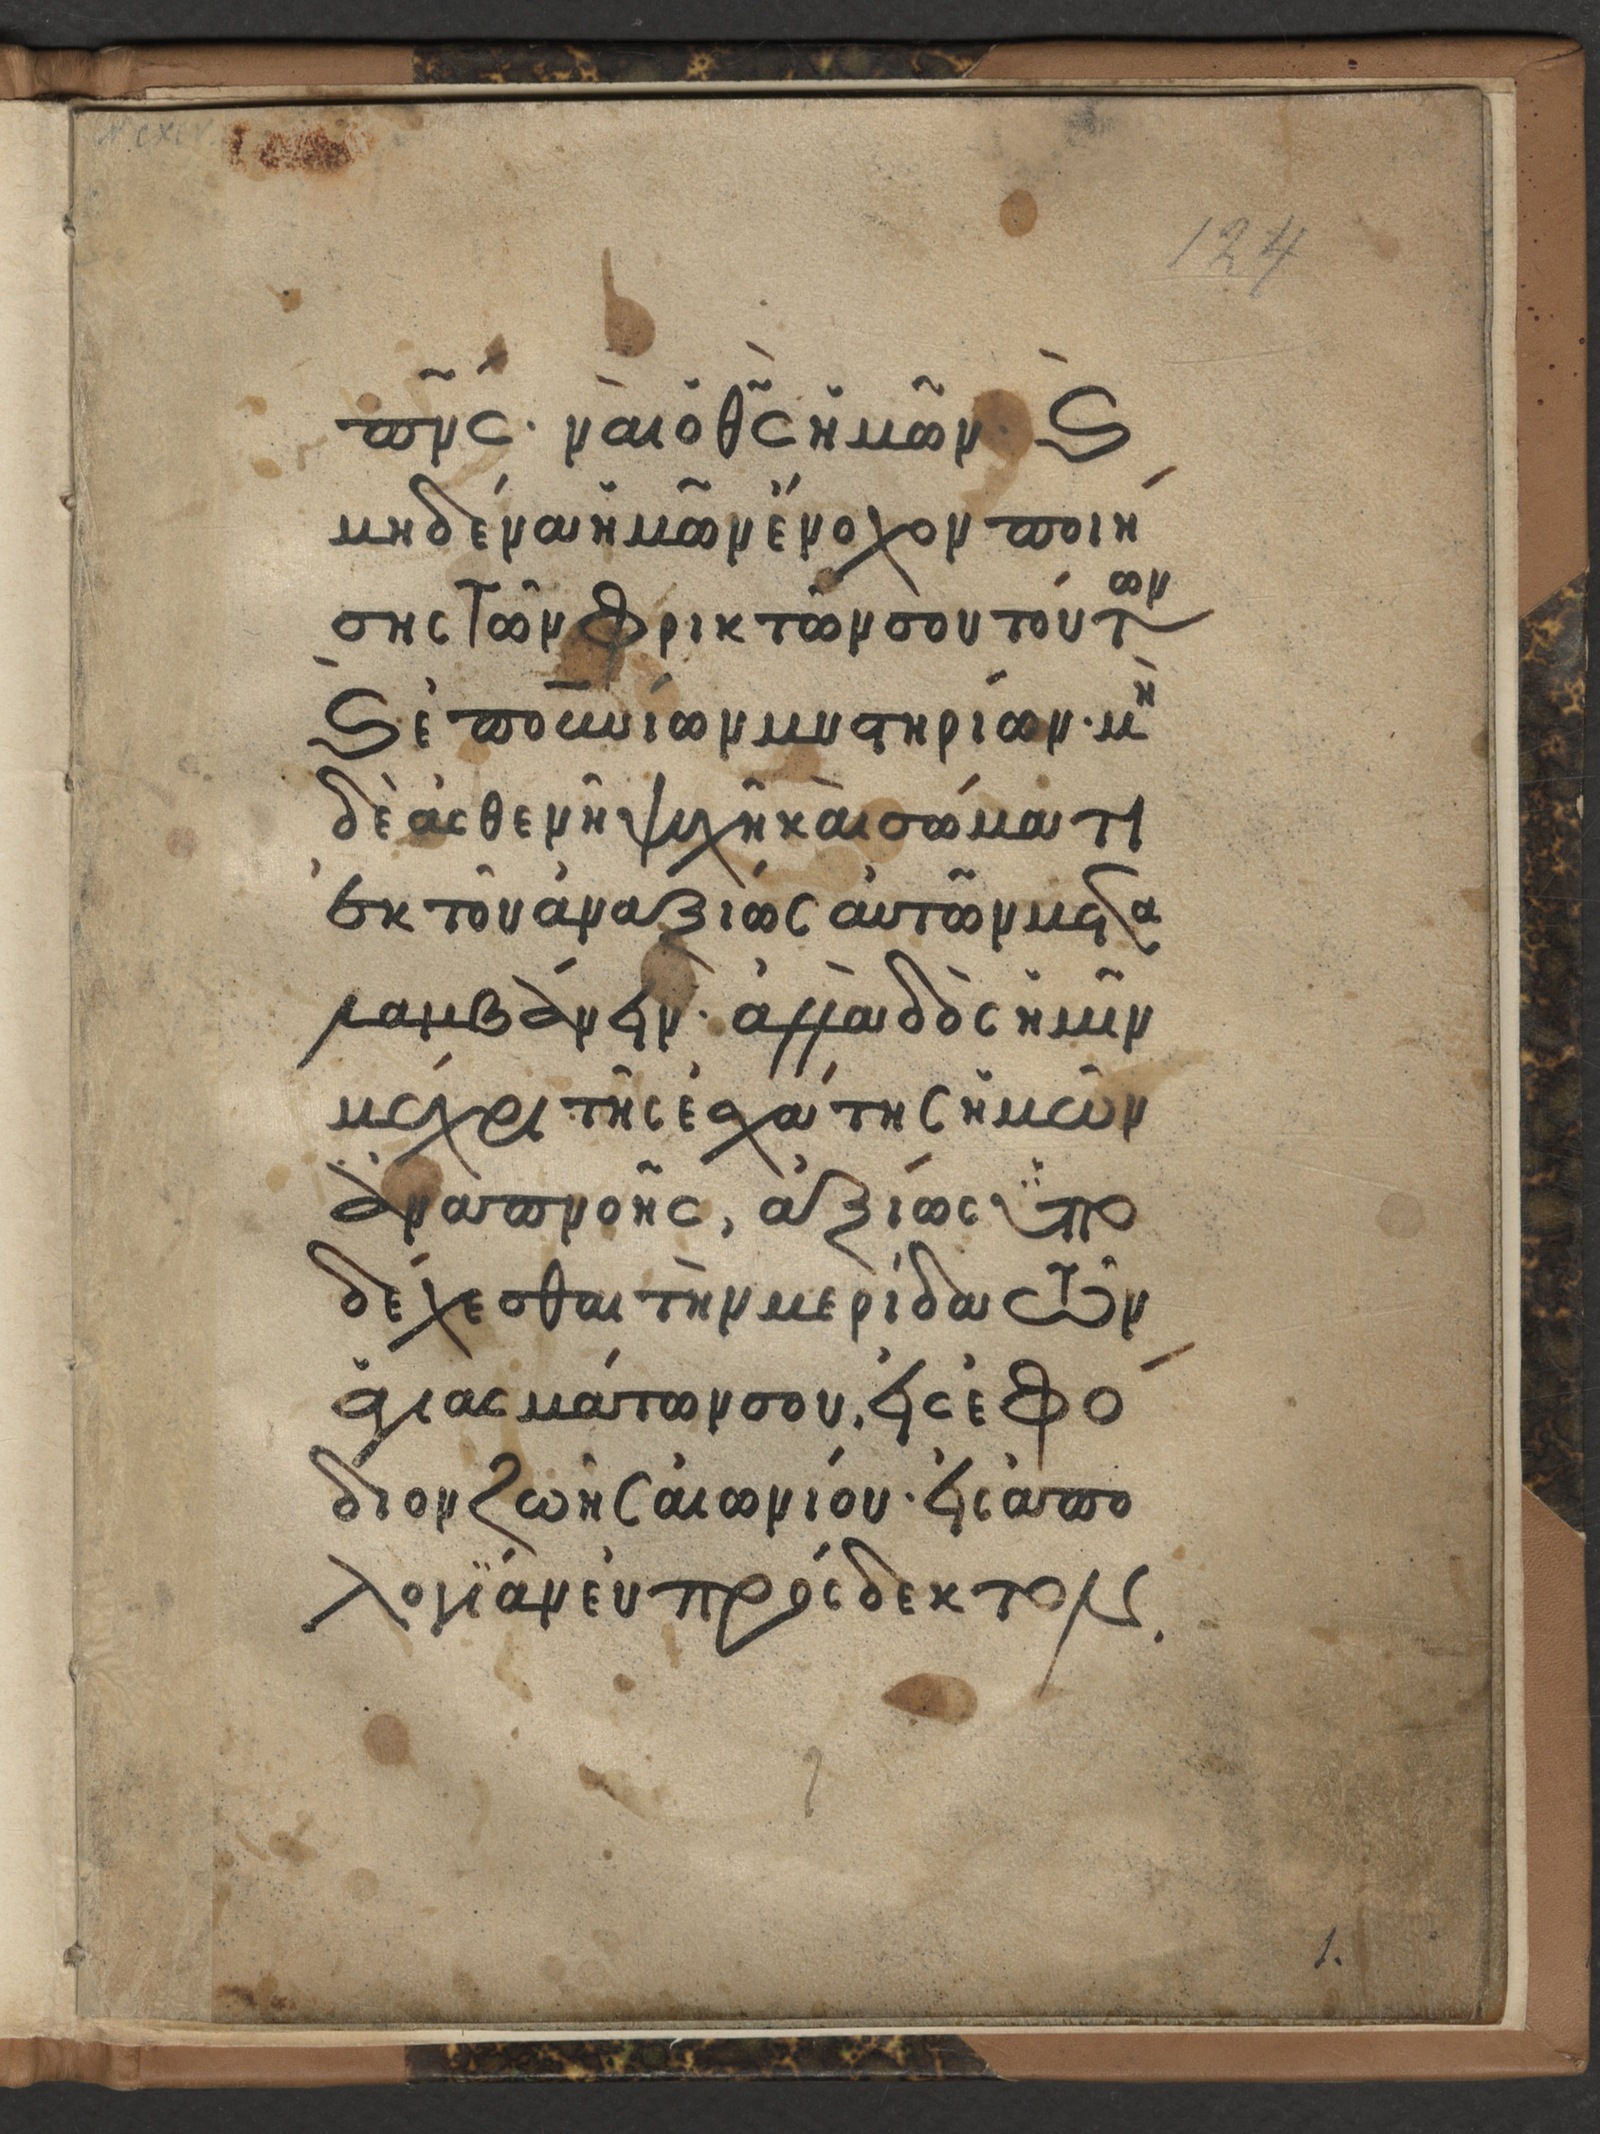 124
πν̅ς· ναὶ ὁ θ̅ς ἡμῶν. (καὶ)
μηδένα ἡμῶν ἔνοχον ποιή
σης τῶν φρικτῶν σου τούτων
(καὶ) ἐπου̅νίων μυστηρίων· μὴ
δὲ ἀσθενῆ ψυχῆ καὶ σώματι
ἐκ τοῦ ἀναξίως αὐτῶν μεστα
λαμβάνειν· ἀλλὰ δὸς ἡμῖν
μέχρι τῆς ἐσχάτης ἡμῶν
ἀναπνοῆς, ἀξίως ὑπο
δέχεσθαι τὴν μερίδα τῶν
ἁγιασμάτων σου, εἰς ἐφό
διον ζωῆς αἰωνίου· εἰς ἀπο
λογίαν εὐπρόσδεκτον
1.